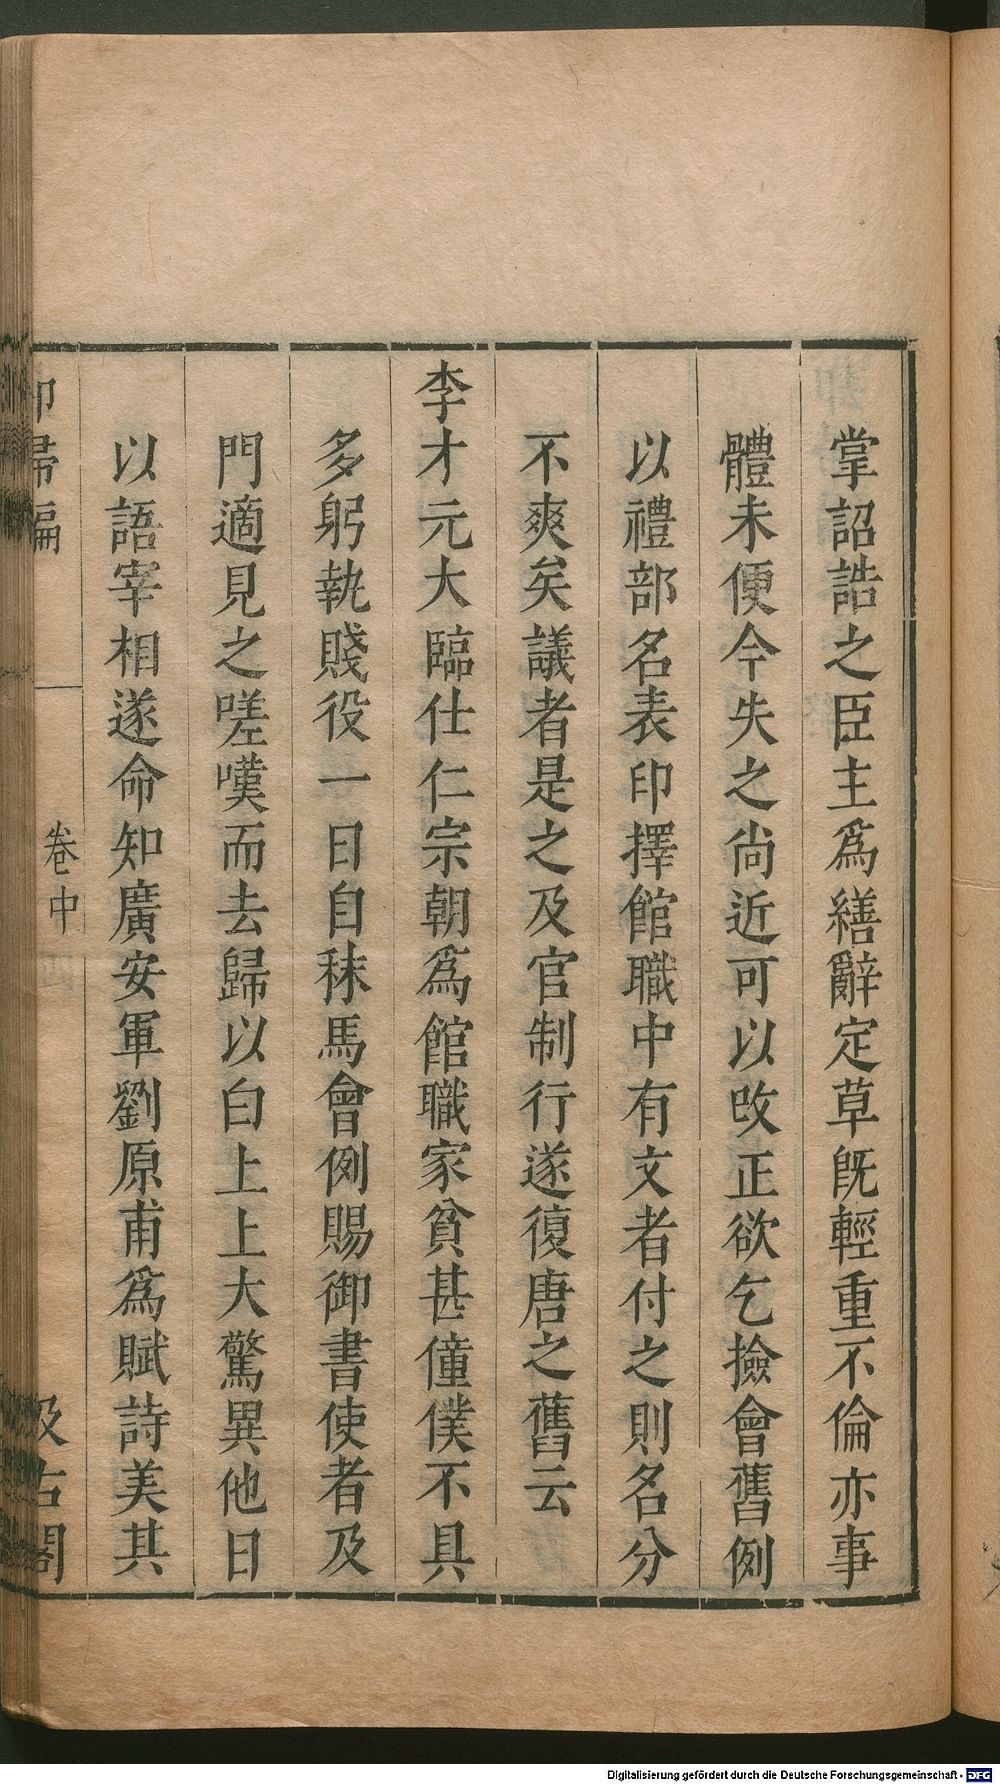 掌詔誥之臣主爲繕辭定草旣輕重不倫亦事
體未便今失之尚近可以改正欲乞撿會舊例
以禮部名表印擇館職中有文者付之則名分
不爽矣議者是之及官制行遂復唐之舊云
李才元大臨仕仁宗朝爲館職家貧甚僮僕不具
多躬執賤役一日自秣馬會例賜御書使者及
門適見之嗟嘆而去歸以白上上大驚異他日
以語宰相遂命知廣安軍劉原甫爲賦詩美其
卻掃編
卷中
汲古閣
Digitalisierung gefördert durch die Deutsche Forschungsgemeinschaft - DFG